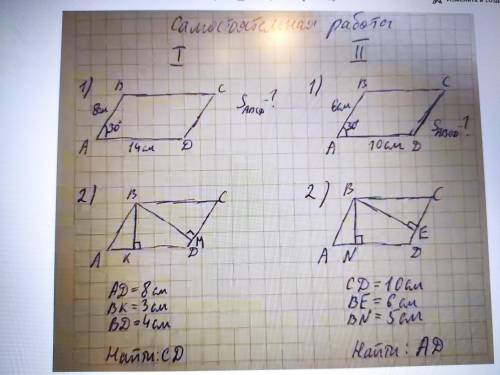 Самостоятельная работа
I
1)
B
C
8см
30°
A
14см
D
S ABCD - ?
2)
B
C
A
K
D
M
AD = 8см
BK = 3см
BD = 4см
Найти: CD
II
1)
B
C
6см
30°
A
10см
D
S ABCD - ?
2)
B
C
A
N
D
E
CD = 10см
BE = 6см
BN = 5см
Найти: AD